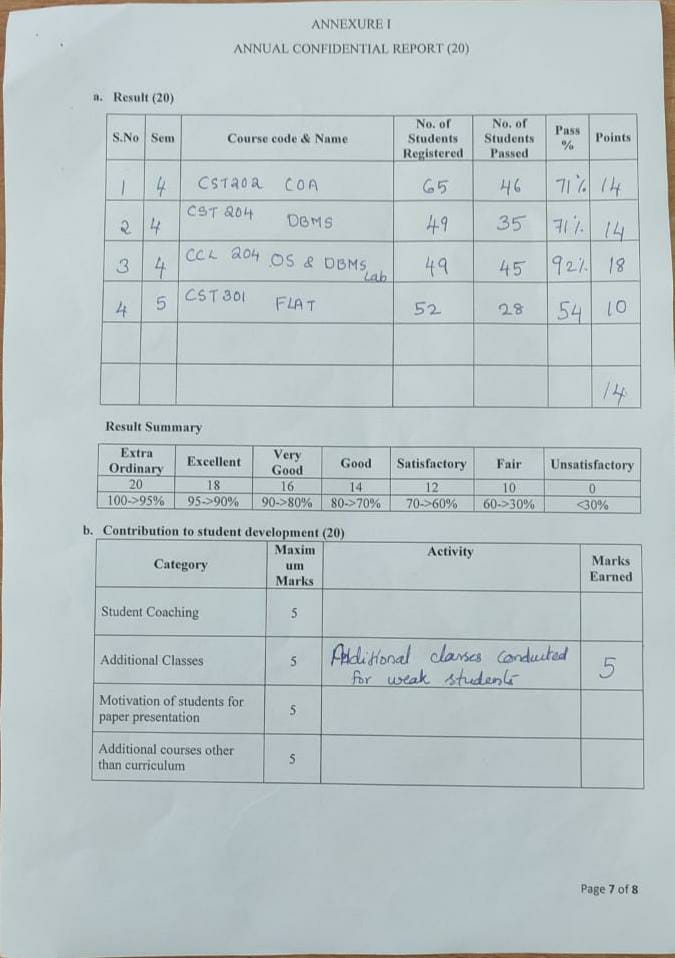 ANNEXURE I
ANNUAL CONFIDENTIAL REPORT (20)
a. Result (20)
S.No Sem Course code & Name No. of Students Registered No. of Students Passed Pass % Points
1 4 CST202 COA 65 46 71% 14
2 4 CST 204 DBMS 49 35 71% 14
3 4 CCL 204 OS & DBMS Lab 49 45 92% 18
4 5 CST301 FLAT 52 28 54 10
14
Result Summary
Extra Ordinary Excellent Very Good Good Satisfactory Fair Unsatisfactory
20 18 16 14 12 10 0
100->95% 95->90% 90->80% 80->70% 70->60% 60->30% <30%
b. Contribution to student development (20)
Category Maximum Marks Activity Marks Earned
Student Coaching 5
Additional Classes 5 Additional classes conducted for weak students 5
Motivation of students for paper presentation 5
Additional courses other than curriculum 5
Page 7 of 8